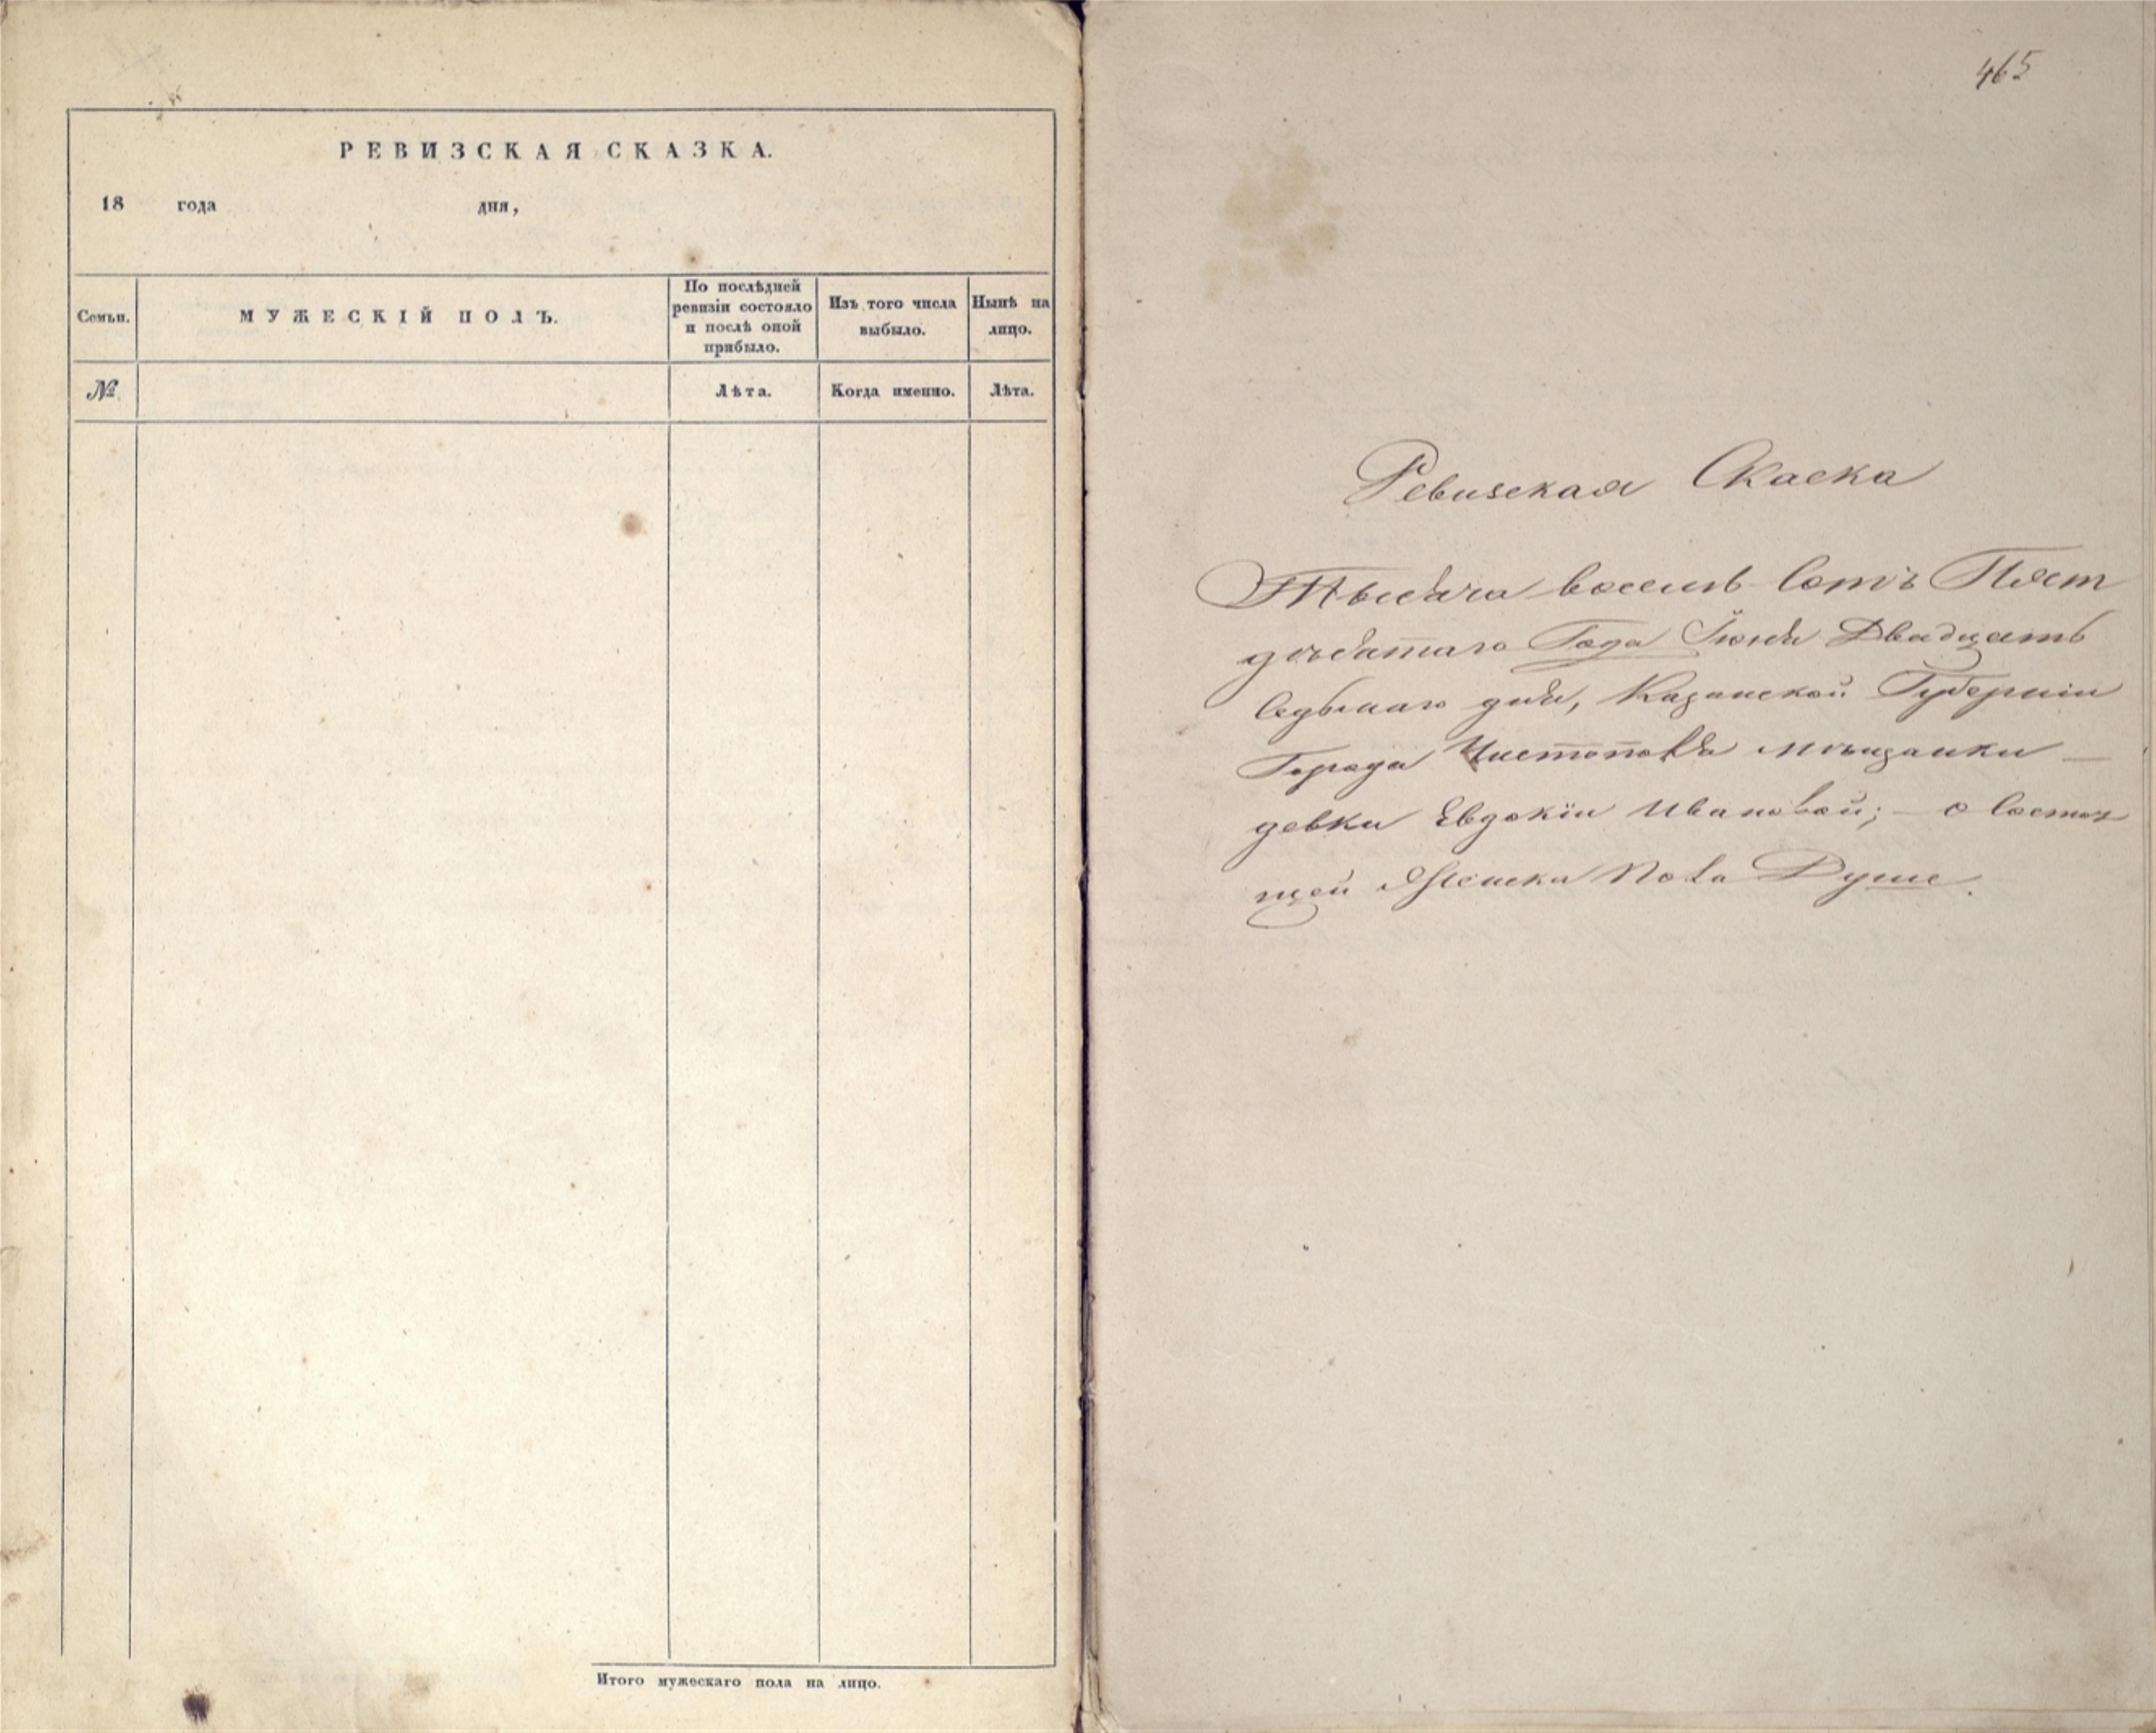 РЕВИЗСКАЯ СКАЗКА.
18 года дня,
Семьи.
МУЖЕСКІЙ ПОЛЪ.
По послѣдней
ревизіи состояло
и послѣ оной
прибыло.
Изъ того числа
выбыло.
Нынѣ на
лицо.
№
Лѣта.
Когда именно.
Лѣта.
Итого мужескаго пола на лицо.
465
Ревизская Скаска
Тысяча восемь сотъ Пят
дѣсятаго Года Іюня Двадцать
седьмаго дня, Казанской Губерніи
Города Чистополя мѣщанки —
девки Евдокіи Ивановой; — о состоя
щей Женска Пола Душе.